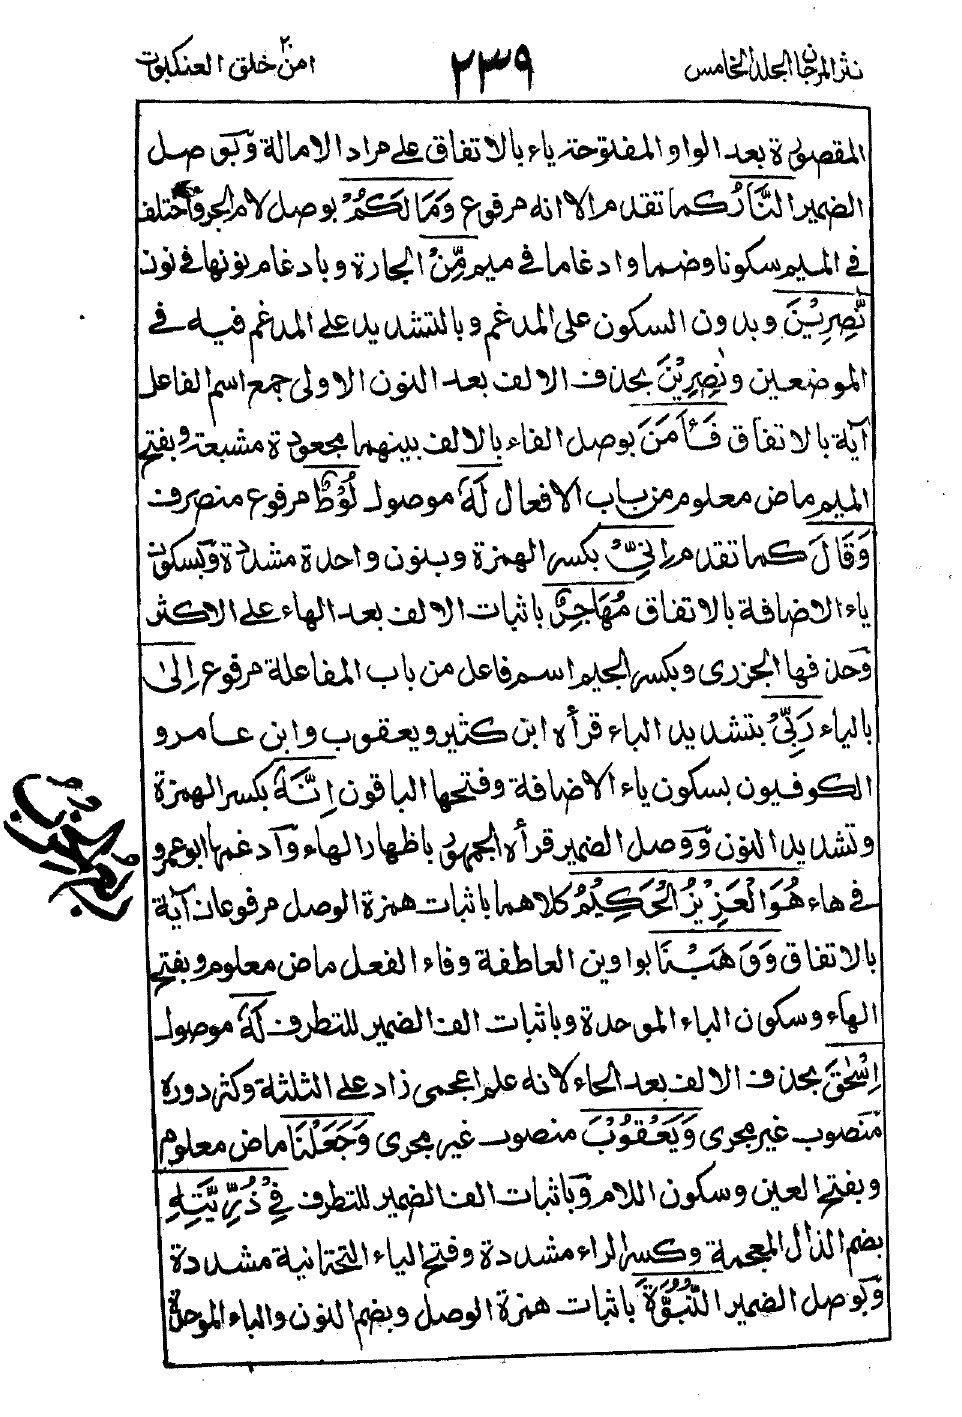 نثر المرجان الجلد الخامس ٢٣٩ امن خلق ٢٠ العنكبوت
المقصورة بعد الواو المفتوحة ياء بالاتفاق على مراد الامالة وبوصل
الضمير النَّارُ كما تقدم الا انه مرفوع وَمَا لَكُمْ بوصل لام الجر واختلف
فى الميم سكونا وضما وادغاما فى ميم مِّنْ الجارة وبادغام نونها فى نون
نّٰصِرِيْنَ وبدون السكون على المدغم وبالتشديد على المدغم فيه فى
الموضعين ونٰصِرِيْنَ بحذف الالف بعد النون الاولى جمع اسم الفاعل
آية بالاتفاق فَـاٰمَنَ بوصل الفاء بالالف بينهما مجعودة مشبعة وبفتح
الميم ماض معلوم من باب الافعال لَهٗ موصول لُوْطٌ مرفوع منصرف
وَقَالَ كما تقدم اِنِّيْ بكسر الهمزة وبنون واحدة مشددة وبسكون
ياء الاضافة بالاتفاق مُهَاجِرٌ باثبات الالف بعد الهاء على الاكثر
وحذفها الجزرى وبكسر الجيم اسم فاعل من باب المفاعلة مرفوع اِلىٰ
بالياء رَبِّيْ بتشديد الباء قرأه ابن كثير ويعقوب وابن عامر و
الكوفيون بسكون ياء الاضافة وفتحها الباقون اِنَّهٗ بكسر الهمزة
وتشديد النون ووصل الضمير قرأه الجمهور باظهار الهاء وادغمها ابو عمرو
فى هاء هُوَ الْعَزِيْزُ الْحَكِيْمُ كلاهما باثبات همزة الوصل مرفوعان آية
بالاتفاق وَوَهَبْنَا بواوين العاطفة وفاء الفعل ماض معلوم وبفتح
الهاء وسكون الباء الموحدة وباثبات الف الضمير للتطرف لَهٗ موصول
اِسْحٰقَ بحذف الالف بعد الحاء لانه علم اعجمى زاد على الثلثة وكثر دوره
منصوب غير مجرى وَيَعْقُوْبَ منصوب غير مجرى وَجَعَلْنَا ماض معلوم
وبفتح العين وسكون اللام وباثبات الف الضمير للتطرف فِيْ ذُرِّيَّتِهِ
بضم الذال المعجمة وكسر الراء مشددة وفتح الياء التحتانية مشددة
وبوصل الضمير النُّبُوَّةَ باثبات همزة الوصل وبضم النون والباء الموحدة